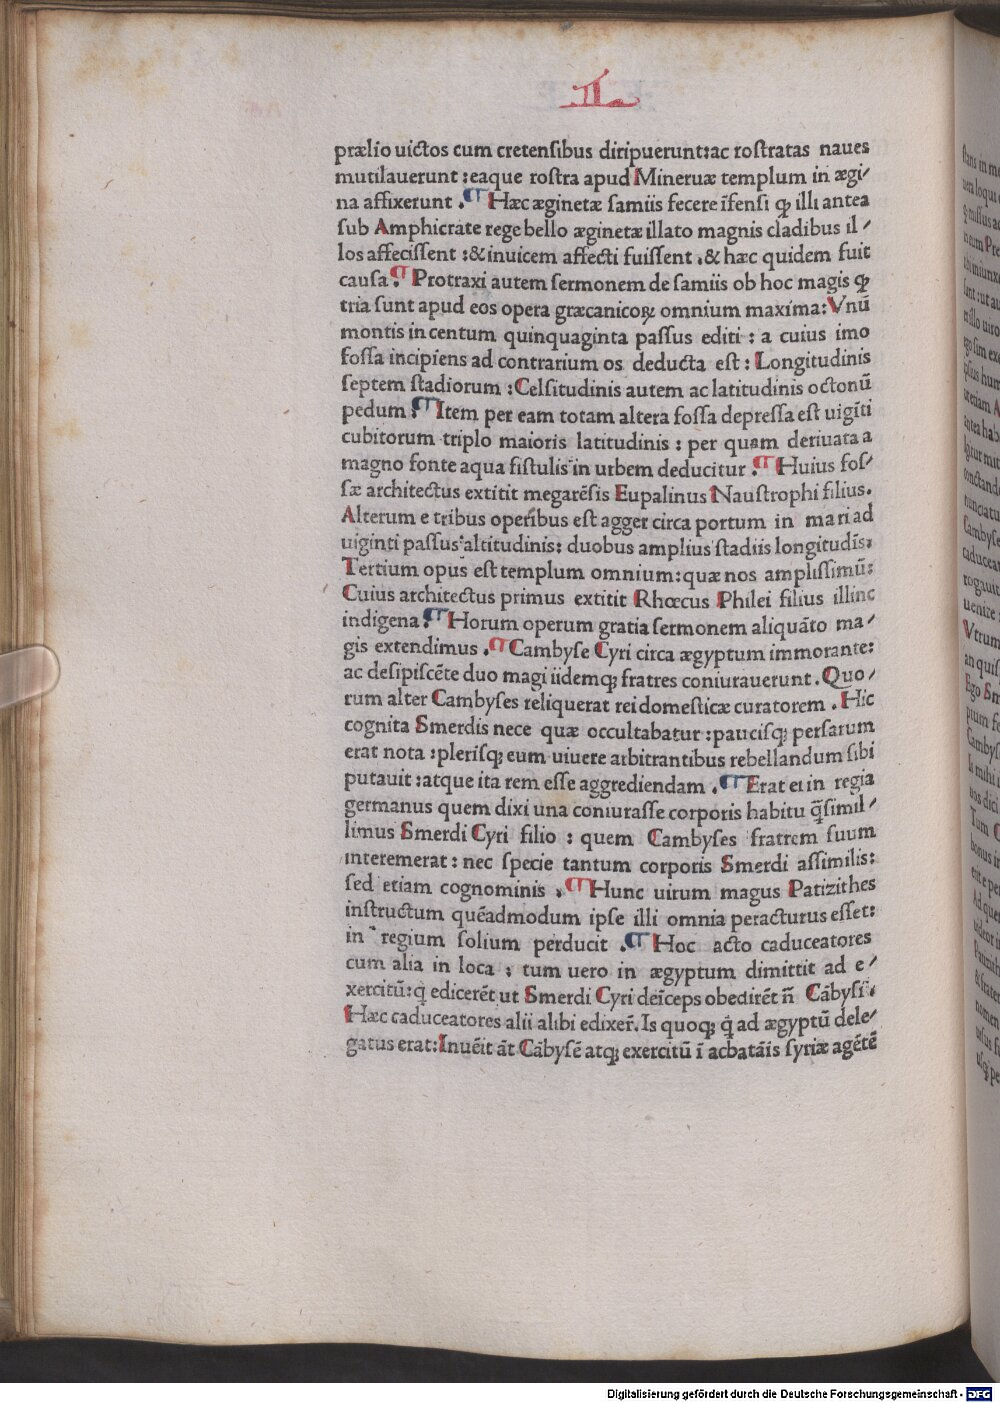 L
prælio uictos cum cretensibus diripuerunt: ac rostratas naues
mutilauerunt: eaque rostra apud Mineruæ templum in ægi/
na affixerunt. ¶ Hæc æginetæ samiis fecere īfensi ꝙ illi antea
sub Amphicrate rege bello æginetæ illato magnis cladibus il/
los affecissent: & inuicem affecti fuissent. & hæc quidem fuit
causa. ¶ Protraxi autem sermonem de samiis ob hoc magis ꝙ
tria sunt apud eos opera græcanicoꝝ omnium maxima: Vnū
montis in centum quinquaginta passus editi: a cuius imo
fossa incipiens ad contrarium os deducta est: Longitudinis
septem stadiorum: Celsitudinis autem ac latitudinis octonū
pedum. ¶ Item per eam totam altera fossa depressa est uigīti
cubitorum triplo maioris latitudinis: per quam deriuata a
magno fonte aqua fistulis in urbem deducitur. ¶ Huius fos/
sæ architectus extitit megarēsis Eupalinus Naustrophi filius.
Alterum e tribus operibus est agger circa portum in mari ad
uiginti passus altitudinis: duobus amplius stadiis longitudīs:
Tertium opus est templum omnium: quæ nos amplissimū:
Cuius architectus primus extitit Rhœcus Philei filius illinc
indigena. ¶ Horum operum gratia sermonem aliquāto ma/
gis extendimus. ¶ Cambyse Cyri circa ægyptum immorante:
ac desipiscēte duo magi iidemqꝫ fratres coniurauerunt. Quo/
rum alter Cambyses reliquerat rei domesticæ curatorem. Hic
cognita Smerdis nece quæ occultabatur: paucisqꝫ persarum
erat nota: plerisqꝫ eum uiuere arbitrantibus rebellandum sibi
putauit: atque ita rem esse aggrediendam. ¶ Erat ei in regia
germanus quem dixi una coniurasse corporis habitu q̄simil/
limus Smerdi Cyri filio: quem Cambyses fratrem suum
interemerat: nec specie tantum corporis Smerdi assimilis:
sed etiam cognominis. ¶ Hunc uirum magus Patizithes
instructum quēadmodum ipse illi omnia peracturus esset:
in regium solium perducit. ¶ Hoc acto caduceatores
cum alia in loca: tum uero in ægyptum dimittit ad e/
xercitū: q̄ edicerēt ut Smerdi Cyri deīceps obedirēt n̄ Cābysi.
Hæc caduceatores alii alibi edixer̄. Is quoqꝫ q̄ ad ægyptū dele/
gatus erat: Inuēit āt Cābysē atqꝫ exercitū ī acbatāis syriæ agētē
Digitalisierung gefördert durch die Deutsche Forschungsgemeinschaft - DFG